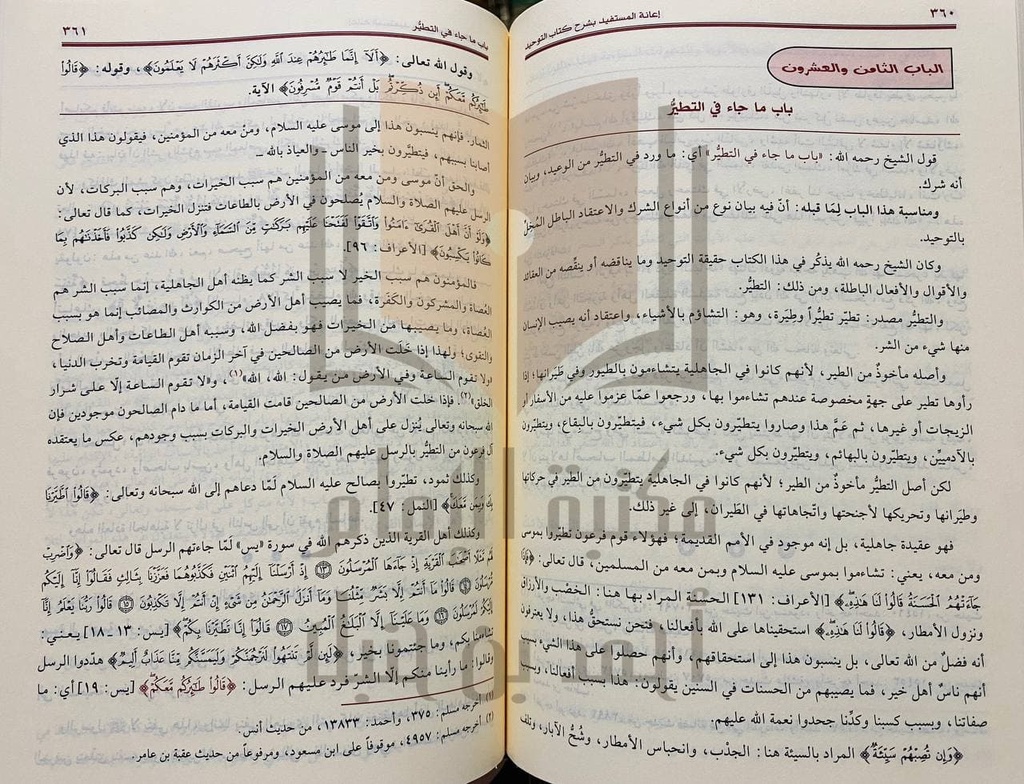 ٣٦٠
إعانة المستفيد بشرح كتاب التوحيد
الباب الثامن والعشرون
باب ما جاء في التطيُّر
قول الشيخ رحمه الله: «باب ما جاء في التطيُّر» أي: ما ورد في التطيُّر من الوعيد، وبيان
أنه شرك.
ومناسبة هذا الباب لِمَا قبله: أنّ فيه بيان نوع من أنواع الشرك والاعتقاد الباطل المُخِلّ
بالتوحيد.
وكان الشيخ رحمه الله يذكُر في هذا الكتاب حقيقة التوحيد وما يناقضه أو ينقِّصه من العقائد
والأقوال والأفعال الباطلة، ومن ذلك: التطيُّر.
والتطيُّر مصدر: تطيّر تطيُّراً وطِيَرة، وهو: التشاؤم بالأشياء، واعتقاد أنه يصيب الإنسان
منها شيء من الشر.
وأصله مأخوذٌ من الطير، لأنهم كانوا في الجاهلية يتشاءمون بالطيور وفي طَيَرانها؛ إذا
رأوها تطير على جهةٍ مخصوصة عندهم تشاءموا بها، ورجعوا عمّا عزموا عليه من الأسفار أو
الزيجات أو غيرها، ثم عَمَّ هذا وصاروا يتطيّرون بكل شيء، فيتطيّرون بالبِقاع، ويتطيّرون
بالآدميّين، ويتطيّرون بالبهائم، ويتطيّرون بكل شيء.
لكن أصل التطيُّر مأخوذ من الطير؛ لأنهم كانوا في الجاهلية يتطيّرون من الطير في حركاتها
وطيَرانها وتحريكها لأجنحتها واتّجاهاتها في الطَيران، إلى غير ذلك.
فهو عقيدة جاهلية، بل إنه موجود في الأمم القديمة، فهؤلاء قوم فرعون تطيّروا بموسى
ومن معه، يعني: تشاءموا بموسى عليه السلام وبمن معه من المسلمين، قال تعالى: ﴿فَإِذَا
جَآءَتْهُمُ ٱلْحَسَنَةُ قَالُوا۟ لَنَا هَـٰذِهِۦ﴾ [الأعراف: ١٣١] الحسَنة المراد بها هنا: الخِصْب والأرزاق
ونزول الأمطار، ﴿قَالُوا۟ لَنَا هَـٰذِهِۦ﴾ استحقيناها على الله بأفعالنا، فنحن نستحقُّ هذا، ولا يعترفون
أنه فضلٌ من الله تعالى، بل ينسبون هذا إلى استحقاقهم، وأنهم حصلوا على هذا الشيء بسبب
أنهم ناسٌ أهل خير، فما يصيبهم من الحسنات في السنين يقولون: هذا بسبب أفعالنا، وبسبب
صفاتنا، وبسبب كسبنا وكدِّنا جحدوا نعمة الله عليهم.
﴿وَإِن تُصِبْهُمْ سَيِّئَةٌ﴾ المراد بالسيئة هنا: الجدْب، وانحباس الأمطار، وشُحُّ الآبار، وتلف
باب ما جاء في التطيُّر
٣٦١
وقول الله تعالى: ﴿أَلَآ إِنَّمَا طَـٰٓئِرُهُمْ عِندَ ٱللَّهِ وَلَـٰكِنَّ أَكْثَرَهُمْ لَا يَعْلَمُونَ﴾، وقوله: ﴿قَالُوا۟
طَـٰٓئِرُكُم مَّعَكُمْ أَئِن ذُكِّرْتُم بَلْ أَنتُمْ قَوْمٌ مُّسْرِفُونَ﴾ الآية.
الثمار. فإنهم ينسُبون هذا إلى موسى عليه السلام، ومنْ معه من المؤمنين، فيقولون هذا الذي
أصابنا بسببهم، فيتطيَّرون بخير الناس ـ والعياذ بالله ـ.
والحق أنّ موسى ومن معه من المؤمنين هم سبب الخيرات، وهم سبب البركات، لأن
الرسل عليهم الصلاة والسلام يُصلحون في الأرض بالطاعات فتنزل الخيرات، كما قال تعالى:
﴿وَلَوْ أَنَّ أَهْلَ ٱلْقُرَىٰٓ ءَامَنُوا۟ وَٱتَّقَوْا۟ لَفَتَحْنَا عَلَيْهِم بَرَكَـٰتٍ مِّنَ ٱلسَّمَآءِ وَٱلْأَرْضِ وَلَـٰكِن كَذَّبُوا۟ فَأَخَذْنَـٰهُم بِمَا
كَانُوا۟ يَكْسِبُونَ﴾ [الأعراف: ٩٦].
فالمؤمنون هم سبب الخير لا سبب الشر كما يظنه أهل الجاهلية، إنما سبب الشر هم
العُصاة والمشركون والكفَرة، فما يصيب أهل الأرض من الكوارث والمصائب إنما هو بسبب
العُصاة، وما يصيبها من الخيرات فهو بفضل الله، وسببه أهل الطاعات وأهل الصلاح
والتقوى؛ ولهذا إذا خَلَت الأرض من الصالحين في آخر الزمان تقوم القيامة وتخرب الدنيا،
«ولا تقوم الساعة وفي الأرض من يقول: الله، الله»(١)، و«لا تقوم الساعة إلّا على شرار
الخلق»(٢). فإذا خلت الأرض من الصالحين قامت القيامة، أما ما دام الصالحون موجودين فإن
الله سبحانه وتعالى يُنزل على أهل الأرض الخيرات والبركات بسبب وجودهم، عكس ما يعتقده
آل فرعون من التطيُّر بالرسل عليهم الصلاة والسلام.
وكذلك ثمود، تطيّروا بصالح عليه السلام لَمّا دعاهم إلى الله سبحانه وتعالى: ﴿قَالُوا۟ ٱطَّيَّرْنَا
بِكَ وَبِمَن مَّعَكَ﴾ [النمل: ٤٧].
وكذلك أهل القرية الذين ذكرهم الله في سورة «يس» لَمّا جاءتهم الرسل قال تعالى: ﴿وَٱضْرِبْ
لَهُم مَّثَلًا أَصْحَـٰبَ ٱلْقَرْيَةِ إِذْ جَآءَهَا ٱلْمُرْسَلُونَ ۝١٣ إِذْ أَرْسَلْنَآ إِلَيْهِمُ ٱثْنَيْنِ فَكَذَّبُوهُمَا فَعَزَّزْنَا بِثَالِثٍ فَقَالُوٓا۟ إِنَّآ إِلَيْكُم
مُّرْسَلُونَ ۝١٤ قَالُوا۟ مَآ أَنتُمْ إِلَّا بَشَرٌ مِّثْلُنَا وَمَآ أَنزَلَ ٱلرَّحْمَـٰنُ مِن شَىْءٍ إِنْ أَنتُمْ إِلَّا تَكْذِبُونَ ۝١٥ قَالُوا۟ رَبُّنَا يَعْلَمُ إِنَّآ
إِلَيْكُمْ لَمُرْسَلُونَ ۝١٦ وَمَا عَلَيْنَآ إِلَّا ٱلْبَلَـٰغُ ٱلْمُبِينُ ۝١٧ قَالُوٓا۟ إِنَّا تَطَيَّرْنَا بِكُمْ﴾ [يس: ١٣ ـ ١٨] يعني:
تشاءمنا بكم، وما جئتمونا بخير، ﴿لَئِن لَّمْ تَنتَهُوا۟ لَنَرْجُمَنَّكُمْ وَلَيَمَسَّنَّكُم مِّنَّا عَذَابٌ أَلِيمٌ﴾ هدّدوا الرسل
وقالوا: ما رأينا منكم إلّا الشر فرد عليهم الرسل: ﴿قَالُوا۟ طَـٰٓئِرُكُم مَّعَكُمْ﴾ [يس: ١٩] أي: ما
(١) أخرجه مسلم: ٣٧٥، وأحمد: ١٣٨٣٣، من حديث أنس.
(٢) أخرجه مسلم: ٤٩٥٧، موقوفاً على ابن مسعود، ومرفوعاً من حديث عقبة بن عامر.
مكتبة الإمام